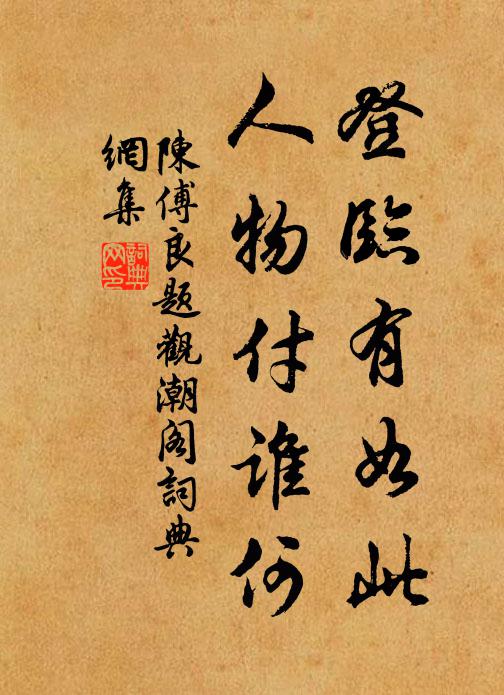 登臨有如此
人物付誰何
陳傅良題觀潮閣詞典
網集
詞典
网印